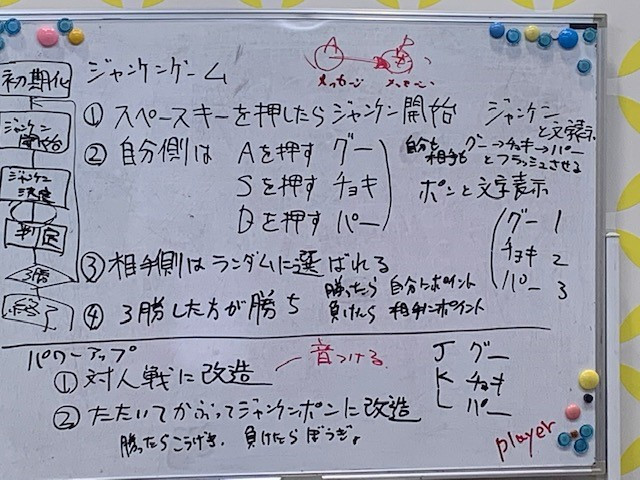 ジャンケンゲーム
メッセージ
① スペースキーを押したら ジャンケン開始
ジャンケン
と文字表示
② 自分側は Aを押す グー
Sを押す チョキ
Dを押す パー
自分も
相手も
グー→チョキ→パー
とフラッシュさせる
ポンと文字表示
グー 1
チョキ 2
パー 3
③ 相手側はランダムに選ばれる
④ 3勝した方が勝ち
勝ったら 自分にポイント
負けたら 相手にポイント
初期化
ジャンケン
開始
ジャンケン
決定
判定
3勝
終了
パワーアップ
① 対人戦に改造
音つける
② たたいてかぶってジャンケンポンに改造
勝ったらこうげき、負けたらぼうぎょ
J グー
K チョキ
L パー
player